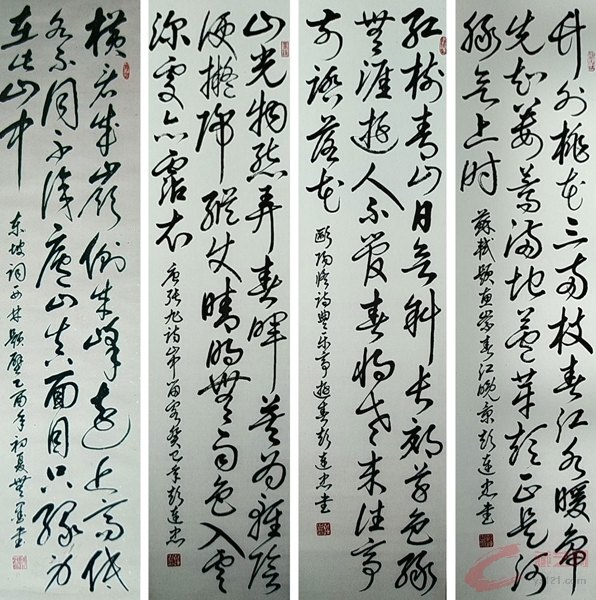 竹外桃花三两枝春江水暖鸭
先知蒌蒿满地芦芽短正是河
豚欲上时
蘇軾题惠崇春江晚景彭连忠书
红树青山日欲斜长郊草色绿
無涯游人不管春将老来往亭
前踏落花
欧阳修诗豊乐亭游春彭连忠书
山光物态弄春晖莫为轻阴
便拟归纵使晴明無雨色入云
深处亦沾衣
唐张旭诗山中留客癸巳年彭连忠
横看成岭侧成峰远近高低
各不同不识庐山真面目只缘身
在此山中
东坡词西林题壁乙酉年初夏